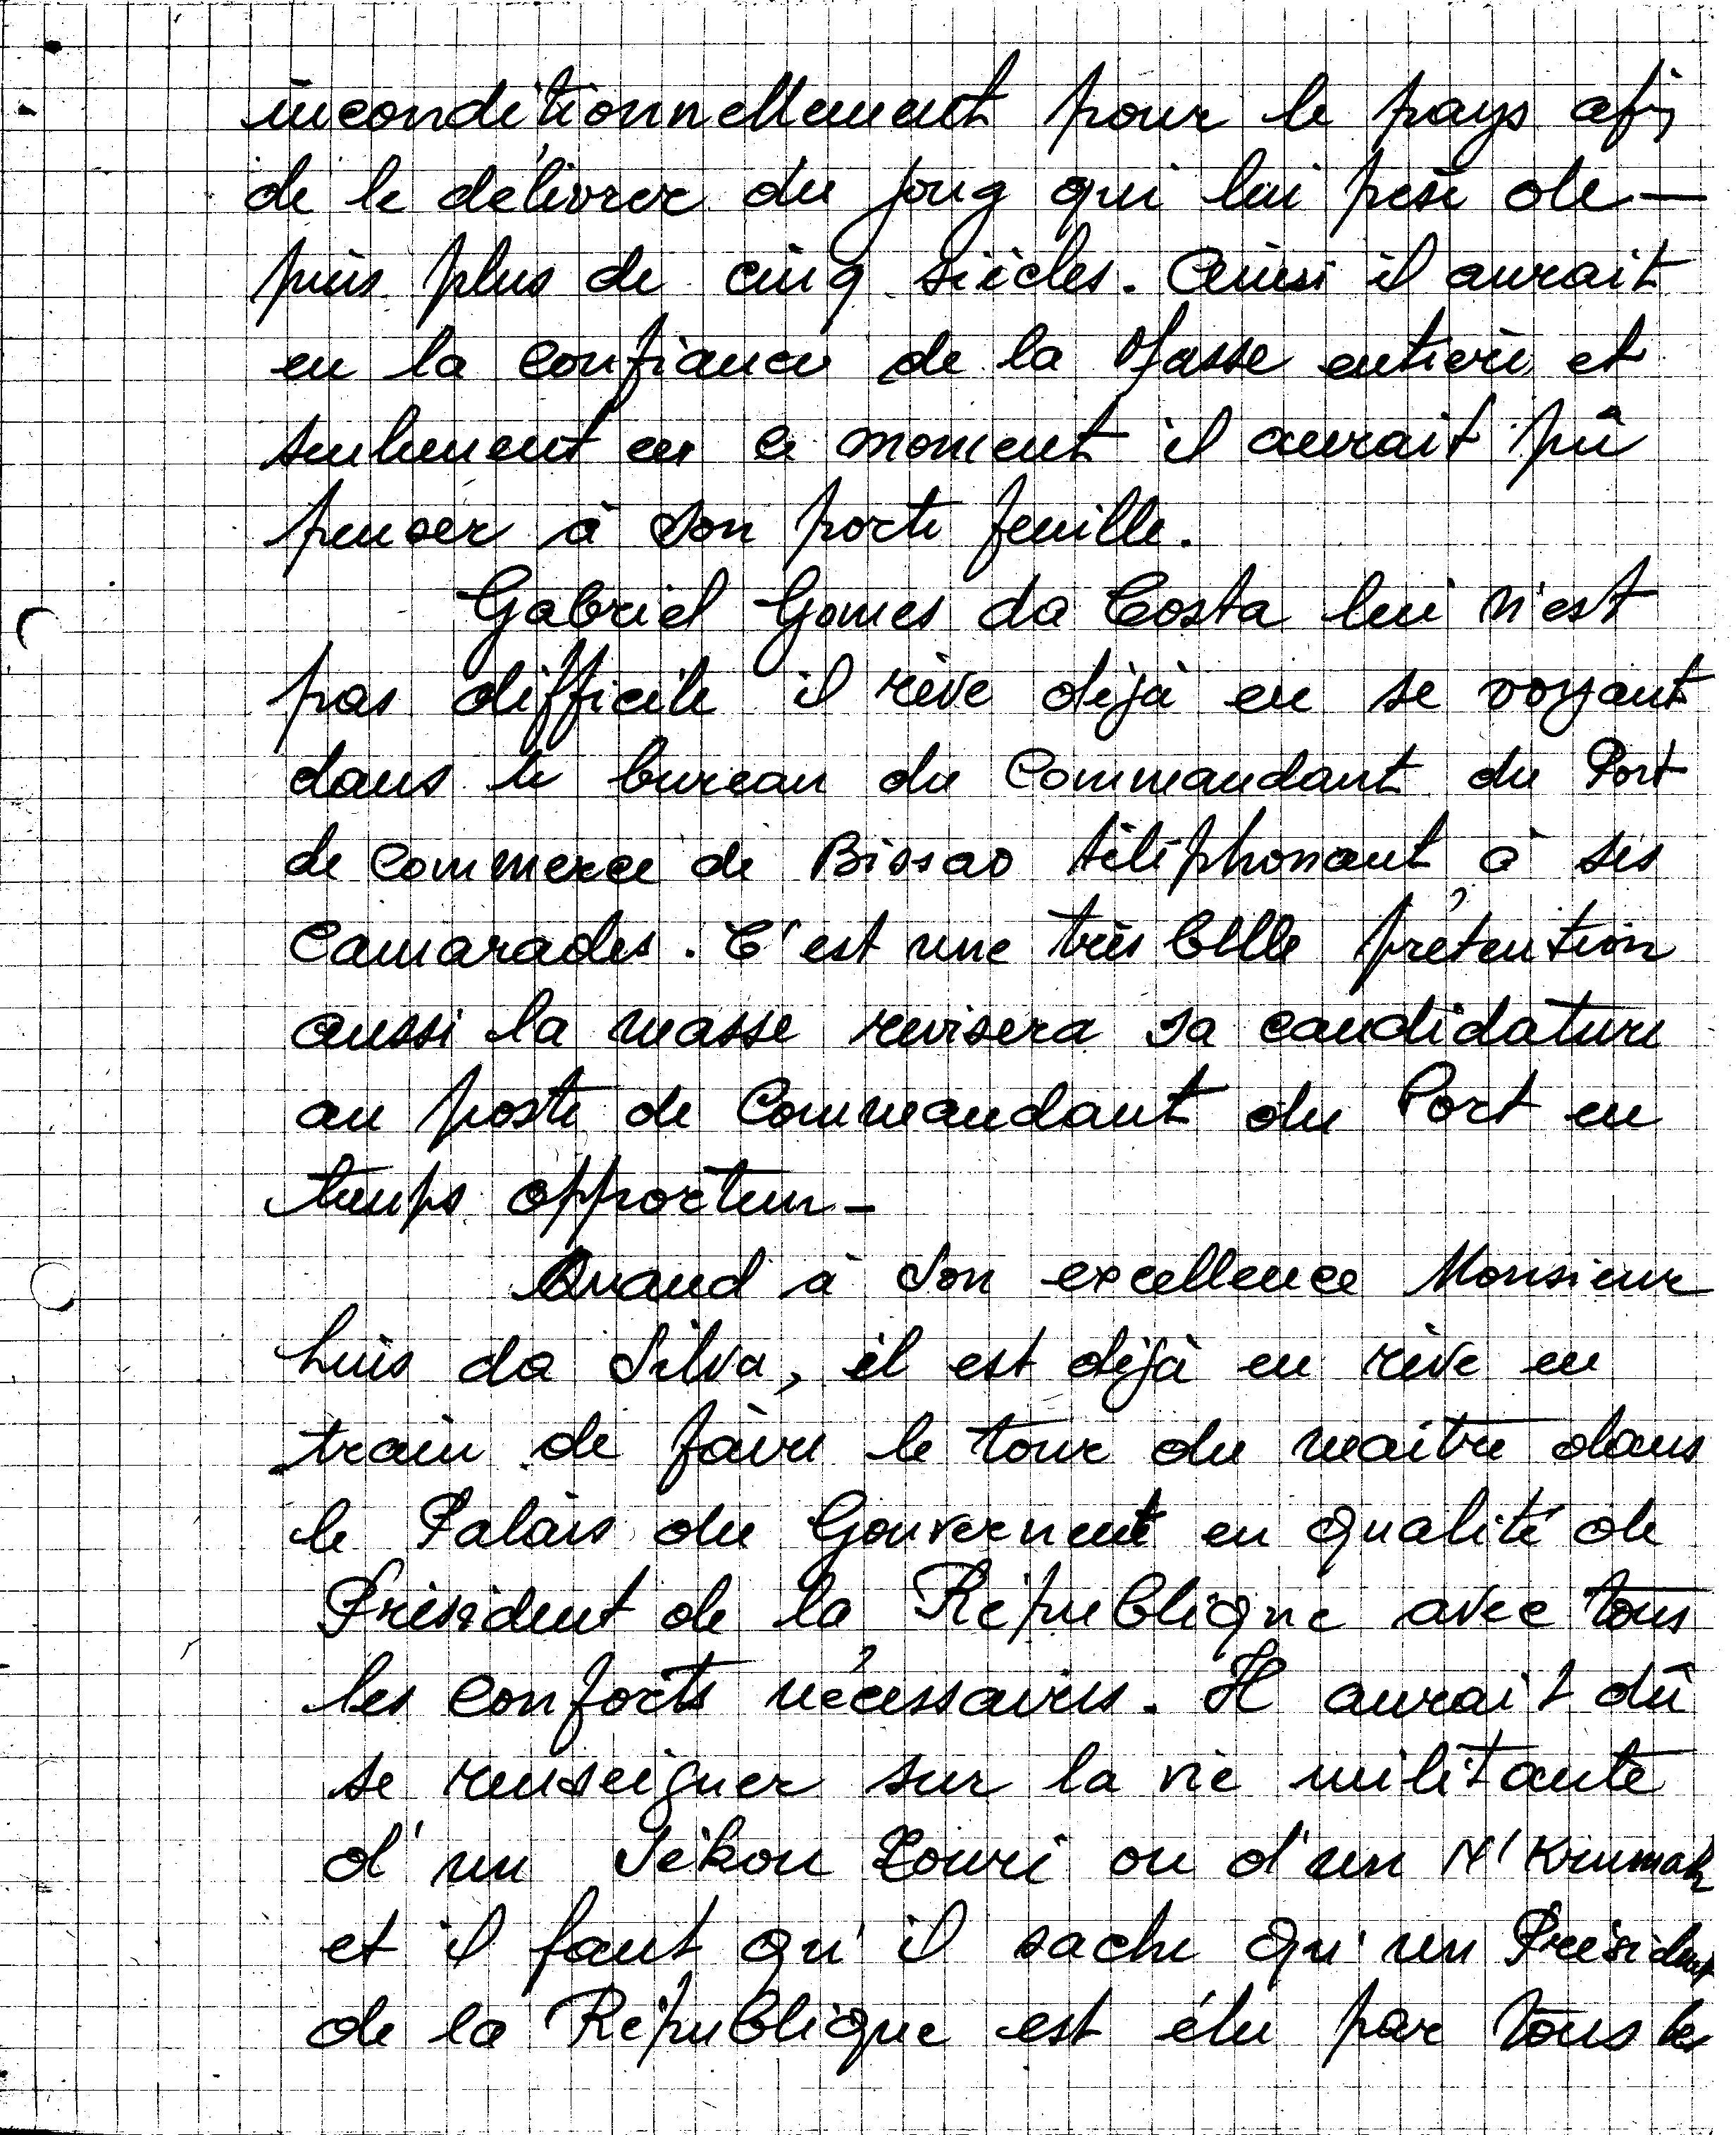 inconditionnellement pour le pays afin
de le délivrer du joug qui lui pèse de-
puis plus de cinq siècles. Ainsi il aurait
eu la confiance de la Masse entière et
seulement en ce moment il aurait pû
penser à son porte feuille.
Gabriel Gomes da Costa lui n'est
pas difficile il rêve déjà en se voyant
dans le bureau du Commandant du Port
de Commerce de Bissao téléphonant à ses
Camarades. C'est une très belle prétention
aussi la masse revisera sa candidature
au poste de Commandant du Port en
temps opportun -
Quand à Son excellence Monsieur
Luis da Silva, il est déjà en rêve en
train de faire le tour du maitre dans
le Palais du Gouvernent en qualité de
Président de la République avec tous
les conforts nécessaires. Il aurait dû
se renseigner sur la vie militante
d'un Sékou Touré ou d'un N'Krumah
et il faut qu'il sache qu'un Président
de la République est élu par tous les